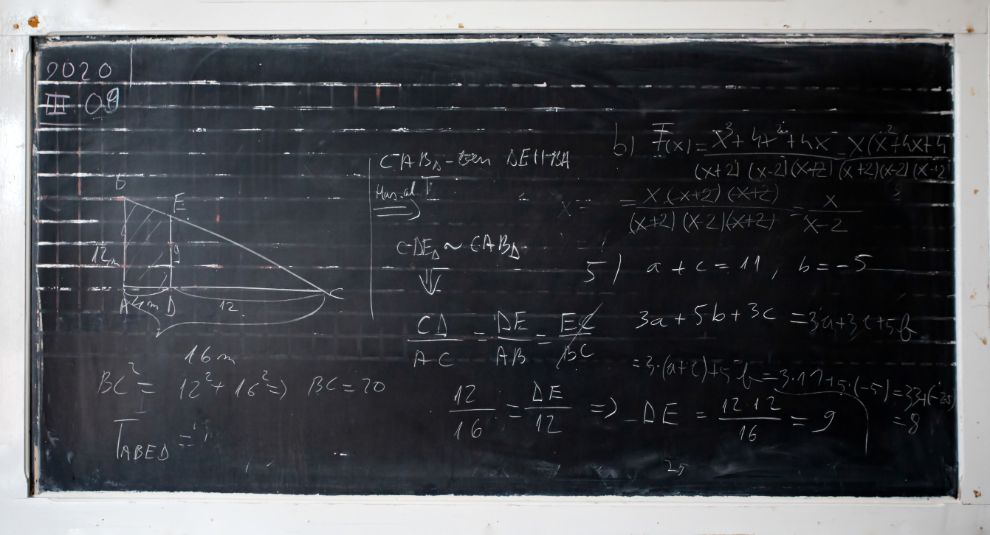 2020
III. 09
B
E
12m
9
A 4m D 12. C
16m
BC² = 12² + 16² => BC = 20
T_ABED =
CAB△-ben DE||BA
CDE△ ~ CAB△
⇓
CD/AC = DE/AB = EC/BC
12/16 = DE/12 => DE = 12·12/16 = 9
b) F(x) = x³+4x²+4x/(x+2)(x-2)(x+2) = x(x²+4x+4)/(x+2)(x-2)(x+2)
= x·(x+2)(x+2)/(x+2)(x-2)(x+2) = x/x-2
5) a+c = 11, b = -5
3a+5b+3c = 3a+3c+5b
= 3·(a+c)+5b = 3·11+5·(-5) = 33+(-25)
= 8
25